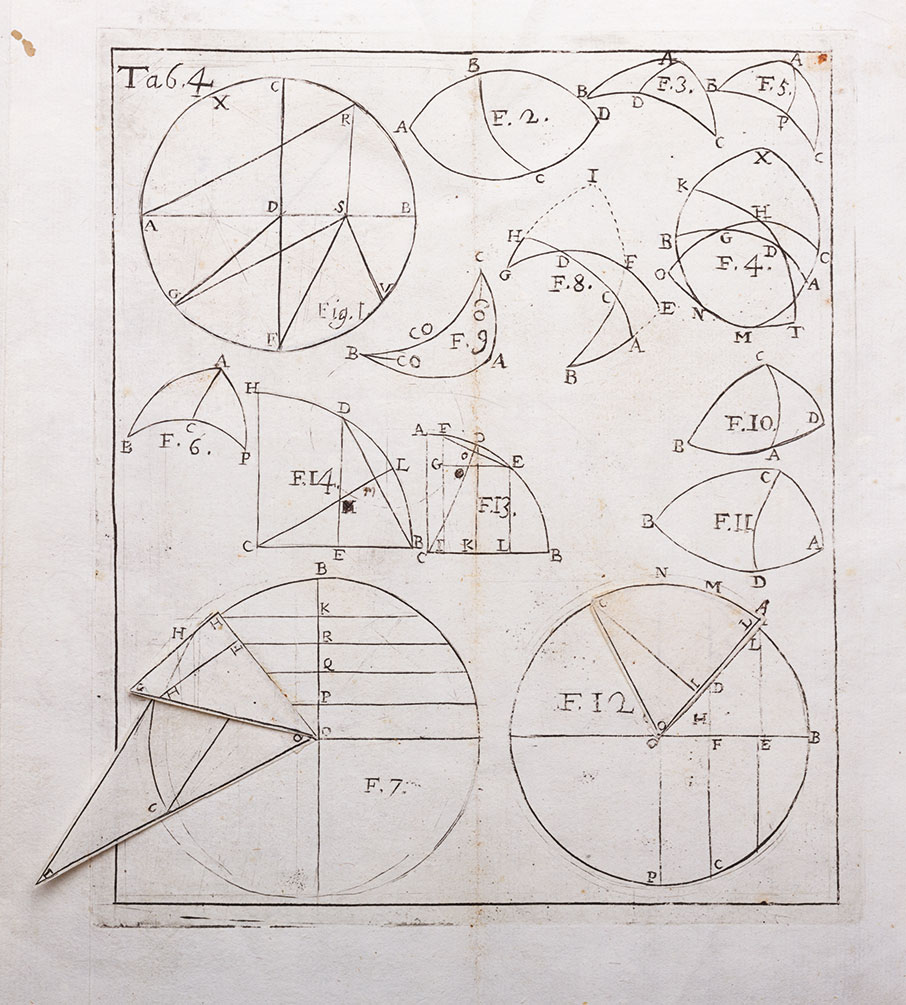 Tab. 4
X
C
R
A
D
S
B
G
V
E
Fig. I.
B
A
F. 2.
D
C
A
B
D
F. 3.
C
B
A
F. 5.
P
C
X
K
H
B
G
D
C
O
F. 4.
A
N
M
T
I
H
G
D
F
F. 8.
C
E
A
B
C
CO
CO
CO
F. 9
B
A
A
B
C
F. 6.
P
H
D
F. 14.
L
m
C
E
B
A
F
D
O
G
E
F. 13.
C
I
K
L
B
C
B
F. 10.
D
A
C
B
F. 11.
A
D
B
K
H
H
R
F
Q
G
H
P
O
F. 7.
C
N
M
C
A
L
L
I
D
F. 12
H
O
F
E
B
P
C